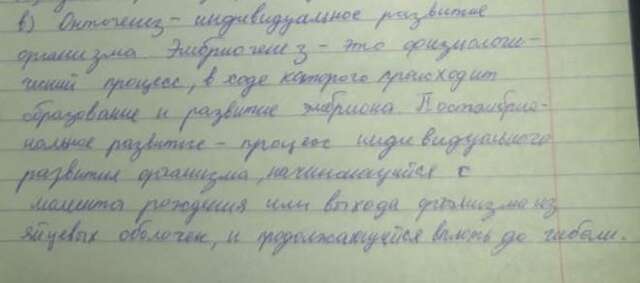 в) Онтогенез - индивидуальное развитие
организма. Эмбриогенез - это физиологи-
ческий процесс, в ходе которого происходит
образование и развитие эмбриона. Постэмбрио-
нальное развитие - процесс индивидуального
развития организма, начинающийся с
момента рождения или выхода организма из
яйцевых оболочек, и продолжающийся вплоть до гибели.